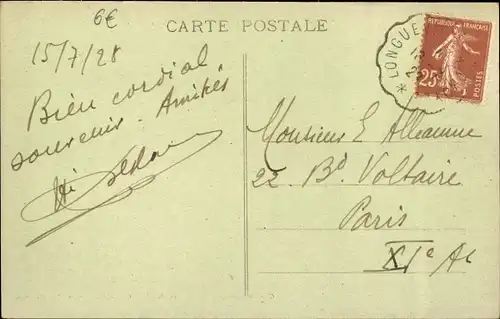 6€
CARTE POSTALE
15/7/28
Bien cordial
souvenir. Amitiés
LONGUE
REPUBLIQUE FRANÇAISE
25
POSTES
Monsieur E
22. Bd Voltaire
Paris
XIe